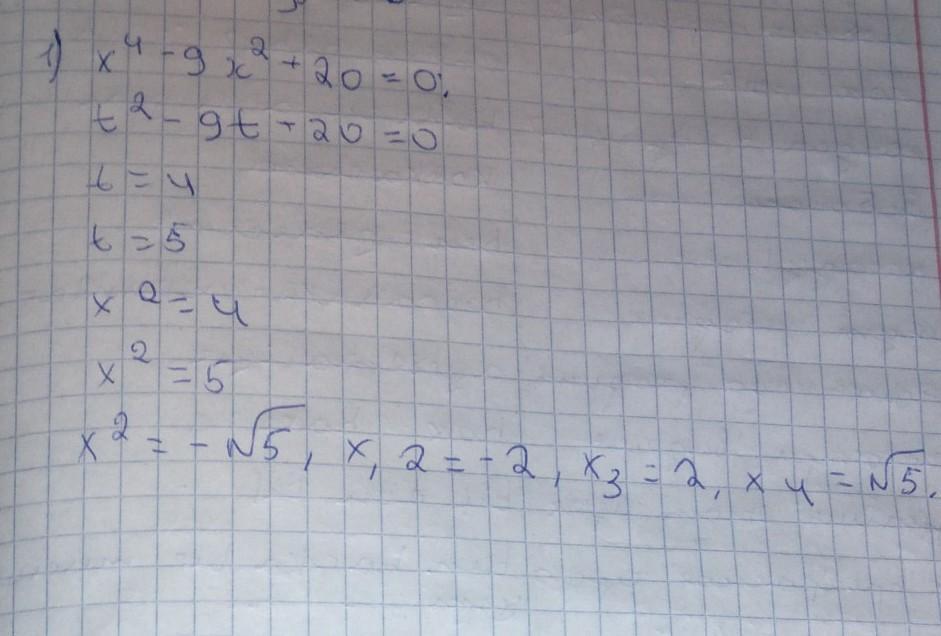 1) x⁴ - 9x² + 20 = 0;
t² - 9t + 20 = 0
t = 4
t = 5
x² = 4
x² = 5
x² = -√5, x, 2 = -2, x₃ = 2, x 4 = √5.